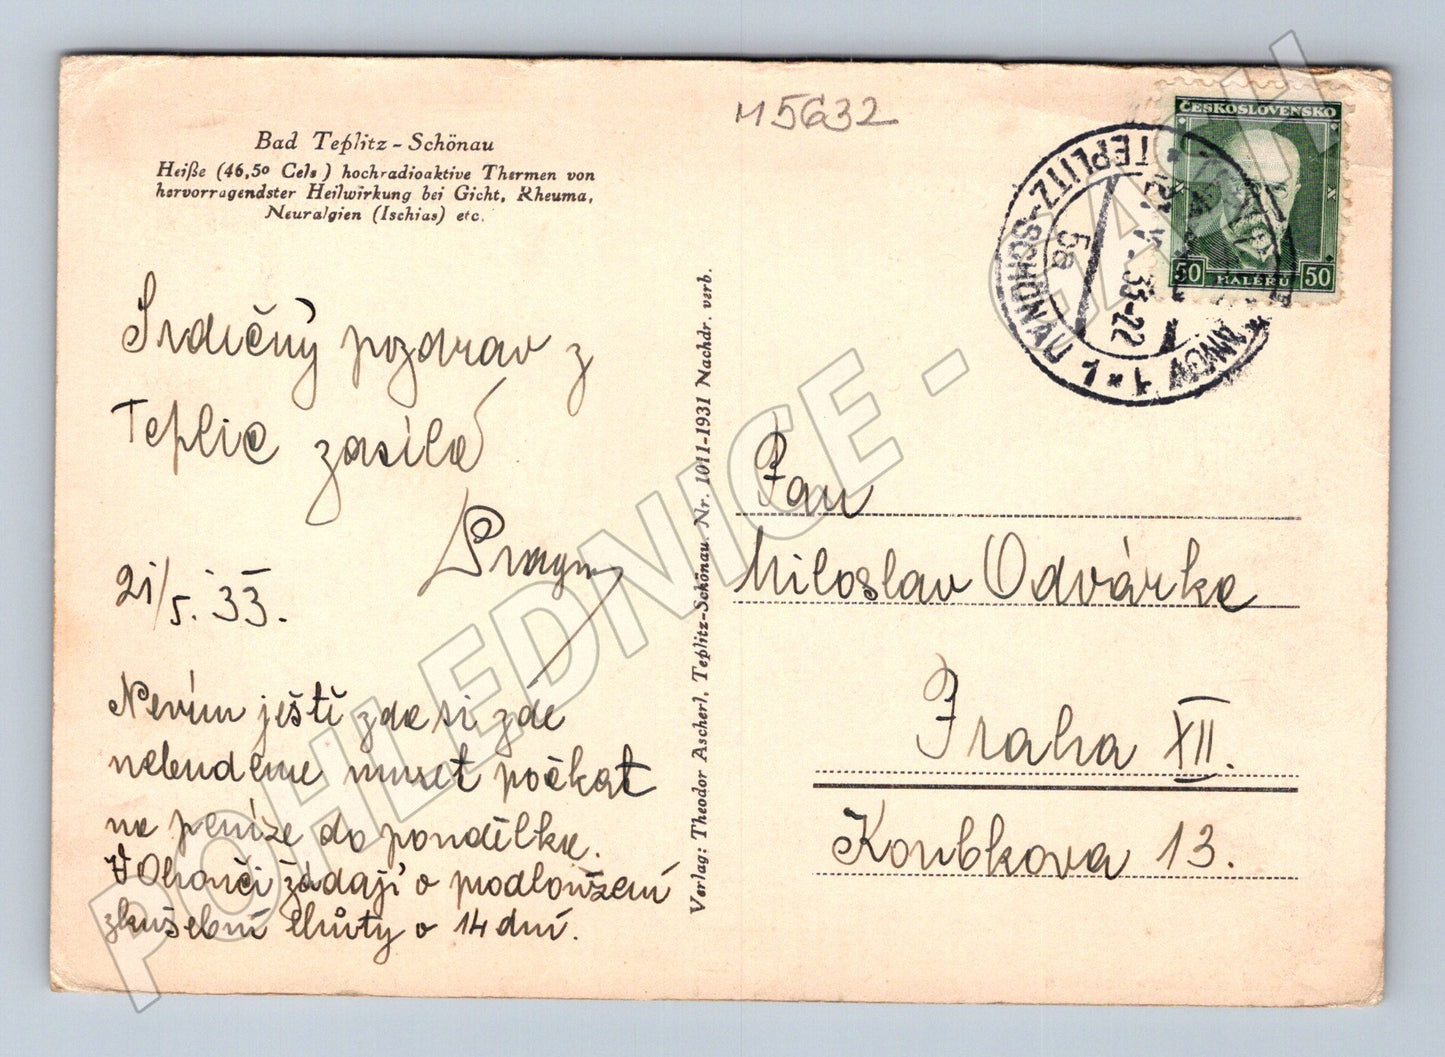 Bad Teplitz-Schönau
Heiße (46,5° Cels) hochradioaktive Thermen von
hervorragendster Heilwirkung bei Gicht, Rheuma,
Neuralgien (Ischias) etc.
Srdečný pozdrav z
Teplic zasílá
21/5. 33.
Nevím ještě zda si zde
nebudeme muset počkat
na peníze do pondělka.
V Ohanči žádají o prodloužení
zkušební lhůty o 14 dní.
Verlag: Theodor Ascherl, Teplitz-Schönau. Nr. 1011-1931 Nachdr. verb.
M5632
ČESKOSLOVENSKO
50 HALÉŘŮ 50
TEPLITZ-SCHÖNAU 1
5a
33-22
Pan
Miloslav Odvárka
Praha XII.
Koubkova 13.
POHLEDNICE -